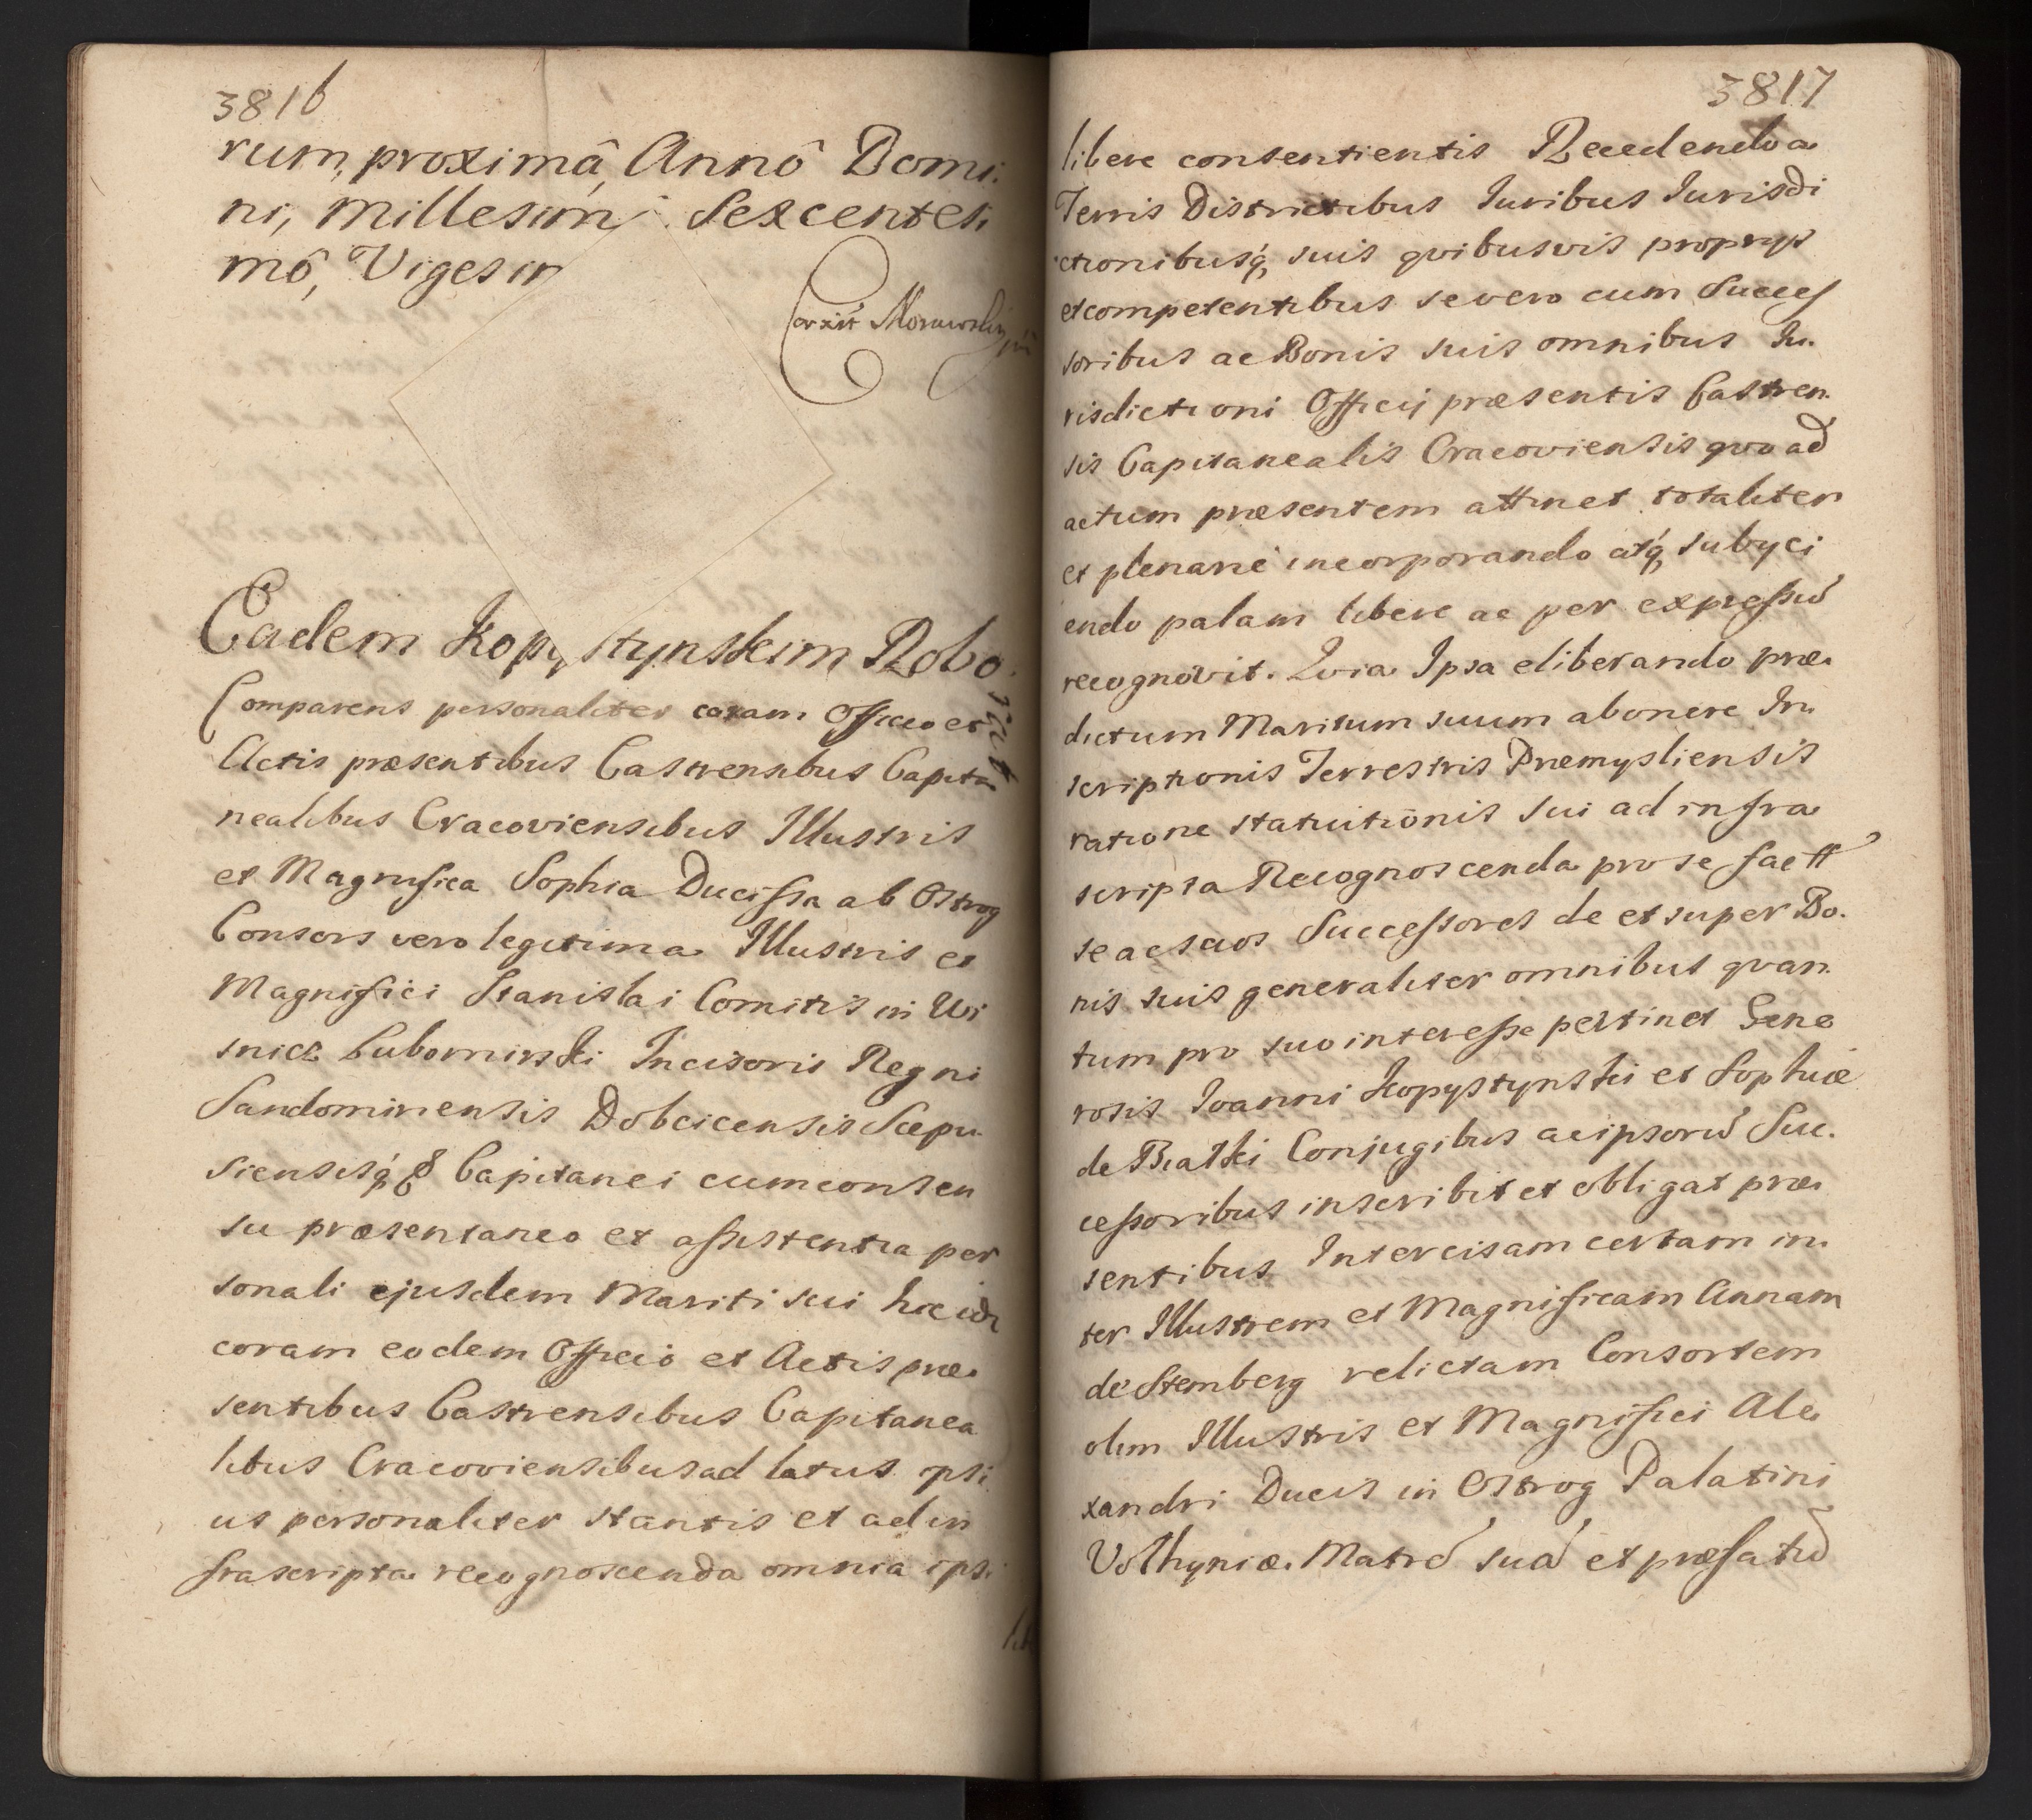 3816
rum, proximâ, Annô Domi:
ni, Millesim Sexcentesi
mô, Vigesim
Corxit Morawski
Eadem Kopystynskim Robo
rat
Comparens personaliter coram Officio et
Actis præsentibus Castrensibus Capita
nealibus Cracoviensibus Illustris
et Magnifica Sophia Ducissa ab Ostrog
Consors vero legitima Illustris et
Magnifici Stanislai Comitis in Wi
snicz Lubomirski Incisoris Regni
Sandomiriensis Dobcicensis Scepu
siensisq́ & Capitanei cum consen
su præsentaneo et assistentia per
sonali ejusdem Mariti sui hic ibi
coram eodem Officio et Actis præ
sentibus Castrensibus Capitanea
libus Cracoviensibus ad latus ipsi
us personaliter stantis et ad in
frascripta recognoscenda omnia ipsi
3817
libere consentientis Recedendo a
Terris Districtibus Juribus Jurisdi
ctionibusq́, suis qvibusvis proprys
et competentibus se vero cum Succes
soribus ac Bonis suis omnibus Ju.
risdictioni Officij præsentis Castren.
sis Capitanealis Cracoviensis qvo ad
actum præsentem attinet totaliter
et plenarie incorporando atq́, subyci
endo palam libere ac per expressũ
recognovit. Qvia Ipsa eliberando præ
dictum Maritum suum ab onere In
scriptionis Terrestris Præmysliensis
ratione statuitionis sui ad infra
scripta Recognoscenda pro se fact
se ac suos Successores de et super Bo.
nis suis generaliter omnibus qvan
tum pro suo interesse pertinet Gene
rosis Joanni Kopystynski et Sophiæ
de Bialski Conjugibus ac ipsorũ Suc.
cessoribus inscribit et obligat præ
sentibus Intercisam certam in
ter Illustrem et Magnificam Annam
de Stemberg relictam Consortem
olim Illustris et Magnifici Ale
xandri Ducis in Ostrog Palatini
Volhyniæ. Matrẽ suã et præfatũ